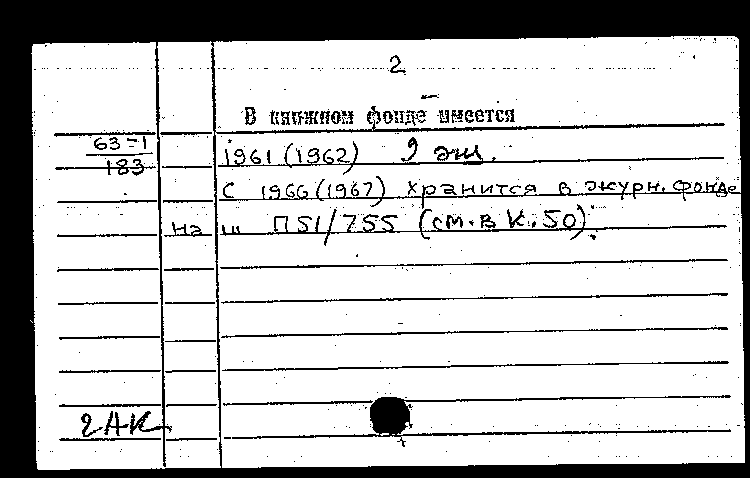 2
В книжном фонде имеется
63-1
183
1961 (1962) 9 экз.
С 1966 (1967) хранится в журн. фонде
на ш П51/755 (см. в К. 50).
2АК